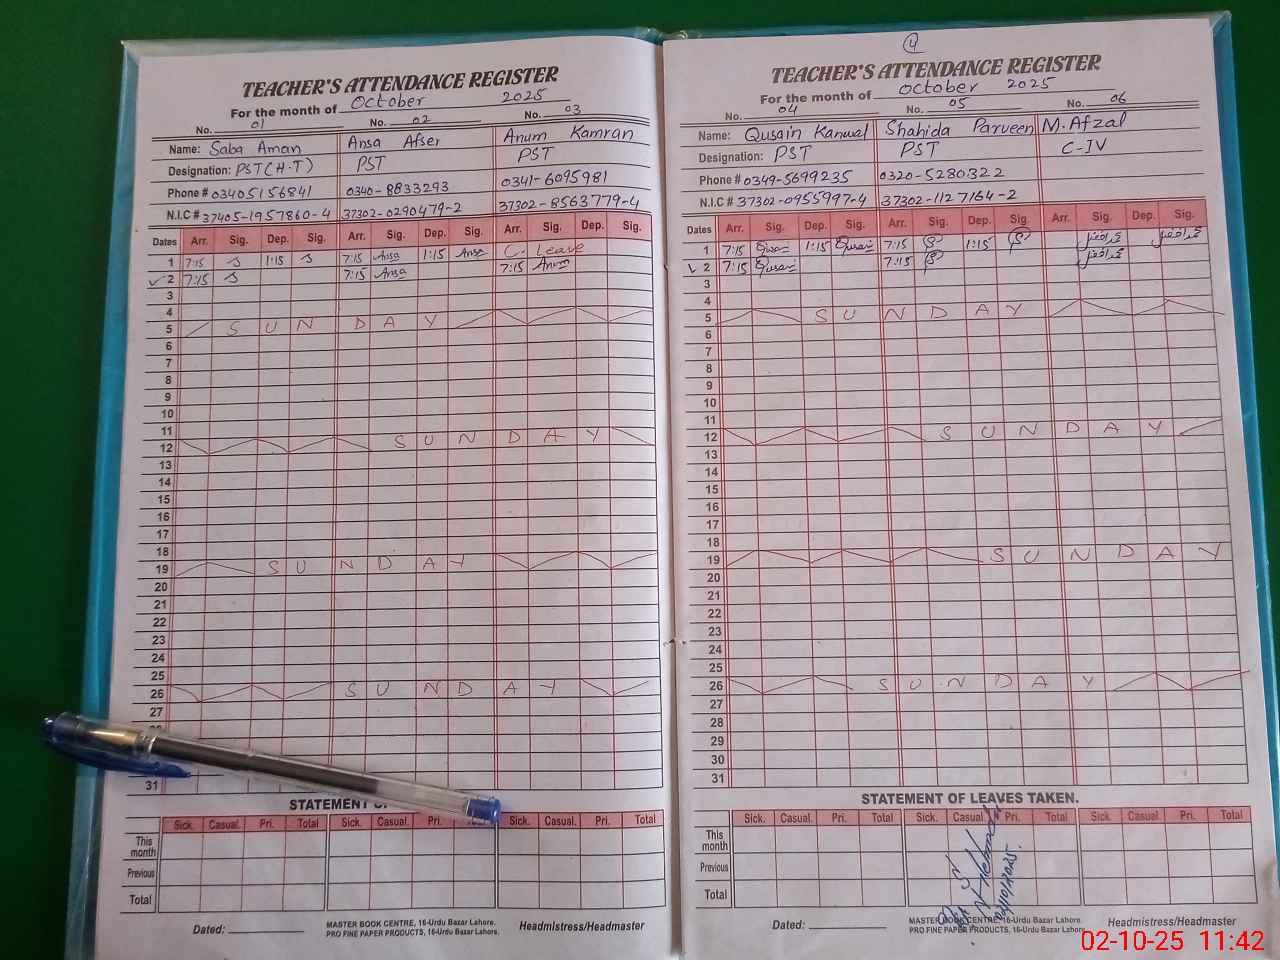 TEACHER'S ATTENDANCE REGISTER
For the month of October 2025
No. 01 No. 02 No. 03
Name: Saba Aman Ansa Afser Anum Kamran
Designation: PST(H.T) PST PST
Phone # 03405156841 0340-8833293 0341-6095981
N.I.C # 37405-1957860-4 37302-0290479-2 37302-8563779-4
Dates Arr. Sig. Dep. Sig. Arr. Sig. Dep. Sig. Arr. Sig. Dep. Sig.
1 7:15 1:15 7:15 Ansa 1:15 Ansa C. Leave
2 7:15 7:15 Ansa 7:15 Anum
3
4
5 SUNDAY
6
7
8
9
10
11
12 SUNDAY
13
14
15
16
17
18
19 SUNDAY
20
21
22
23
24
25
26 SUNDAY
27
31
Sick. Casual. Pri. Total Sick. Casual. Pri. Sick. Casual. Pri. Total
This month
Previous
Total
Dated:
MASTER BOOK CENTRE, 16-Urdu Bazar Lahore.
PRO FINE PAPER PRODUCTS, 16-Urdu Bazar Lahore.
Headmistress/Headmaster
4
TEACHER'S ATTENDANCE REGISTER
For the month of October 2025
No. 04 No. 05 No. 06
Name: Qusain Kanwal Shahida Parveen M.Afzal
Designation: PST PST C-IV
Phone # 0349-5699235 0320-5280322
N.I.C # 37302-0955997-4 37302-1127164-2
Dates Arr. Sig. Dep. Sig. Arr. Sig. Dep. Sig. Arr. Sig. Dep. Sig.
1 7:15 Qusain 1:15 Qusain 7:15 1:15 محمد افضل محمد افضل
2 7:15 Qusain 7:15 محمد افضل
3
4
5 SUNDAY
6
7
8
9
10
11
12 SUNDAY
13
14
15
16
17
18
19 SUNDAY
20
21
22
23
24
25
26 SUNDAY
27
28
29
30
31
STATEMENT OF LEAVES TAKEN.
Sick. Casual. Pri. Total Sick. Casual. Pri. Total Sick. Casual. Pri. Total
This month
Previous
Total
02/10/2025.
Dated:
MASTER BOOK CENTRE, 16-Urdu Bazar Lahore.
PRO FINE PAPER PRODUCTS, 16-Urdu Bazar Lahore.
Headmistress/Headmaster
02-10-25 11:42